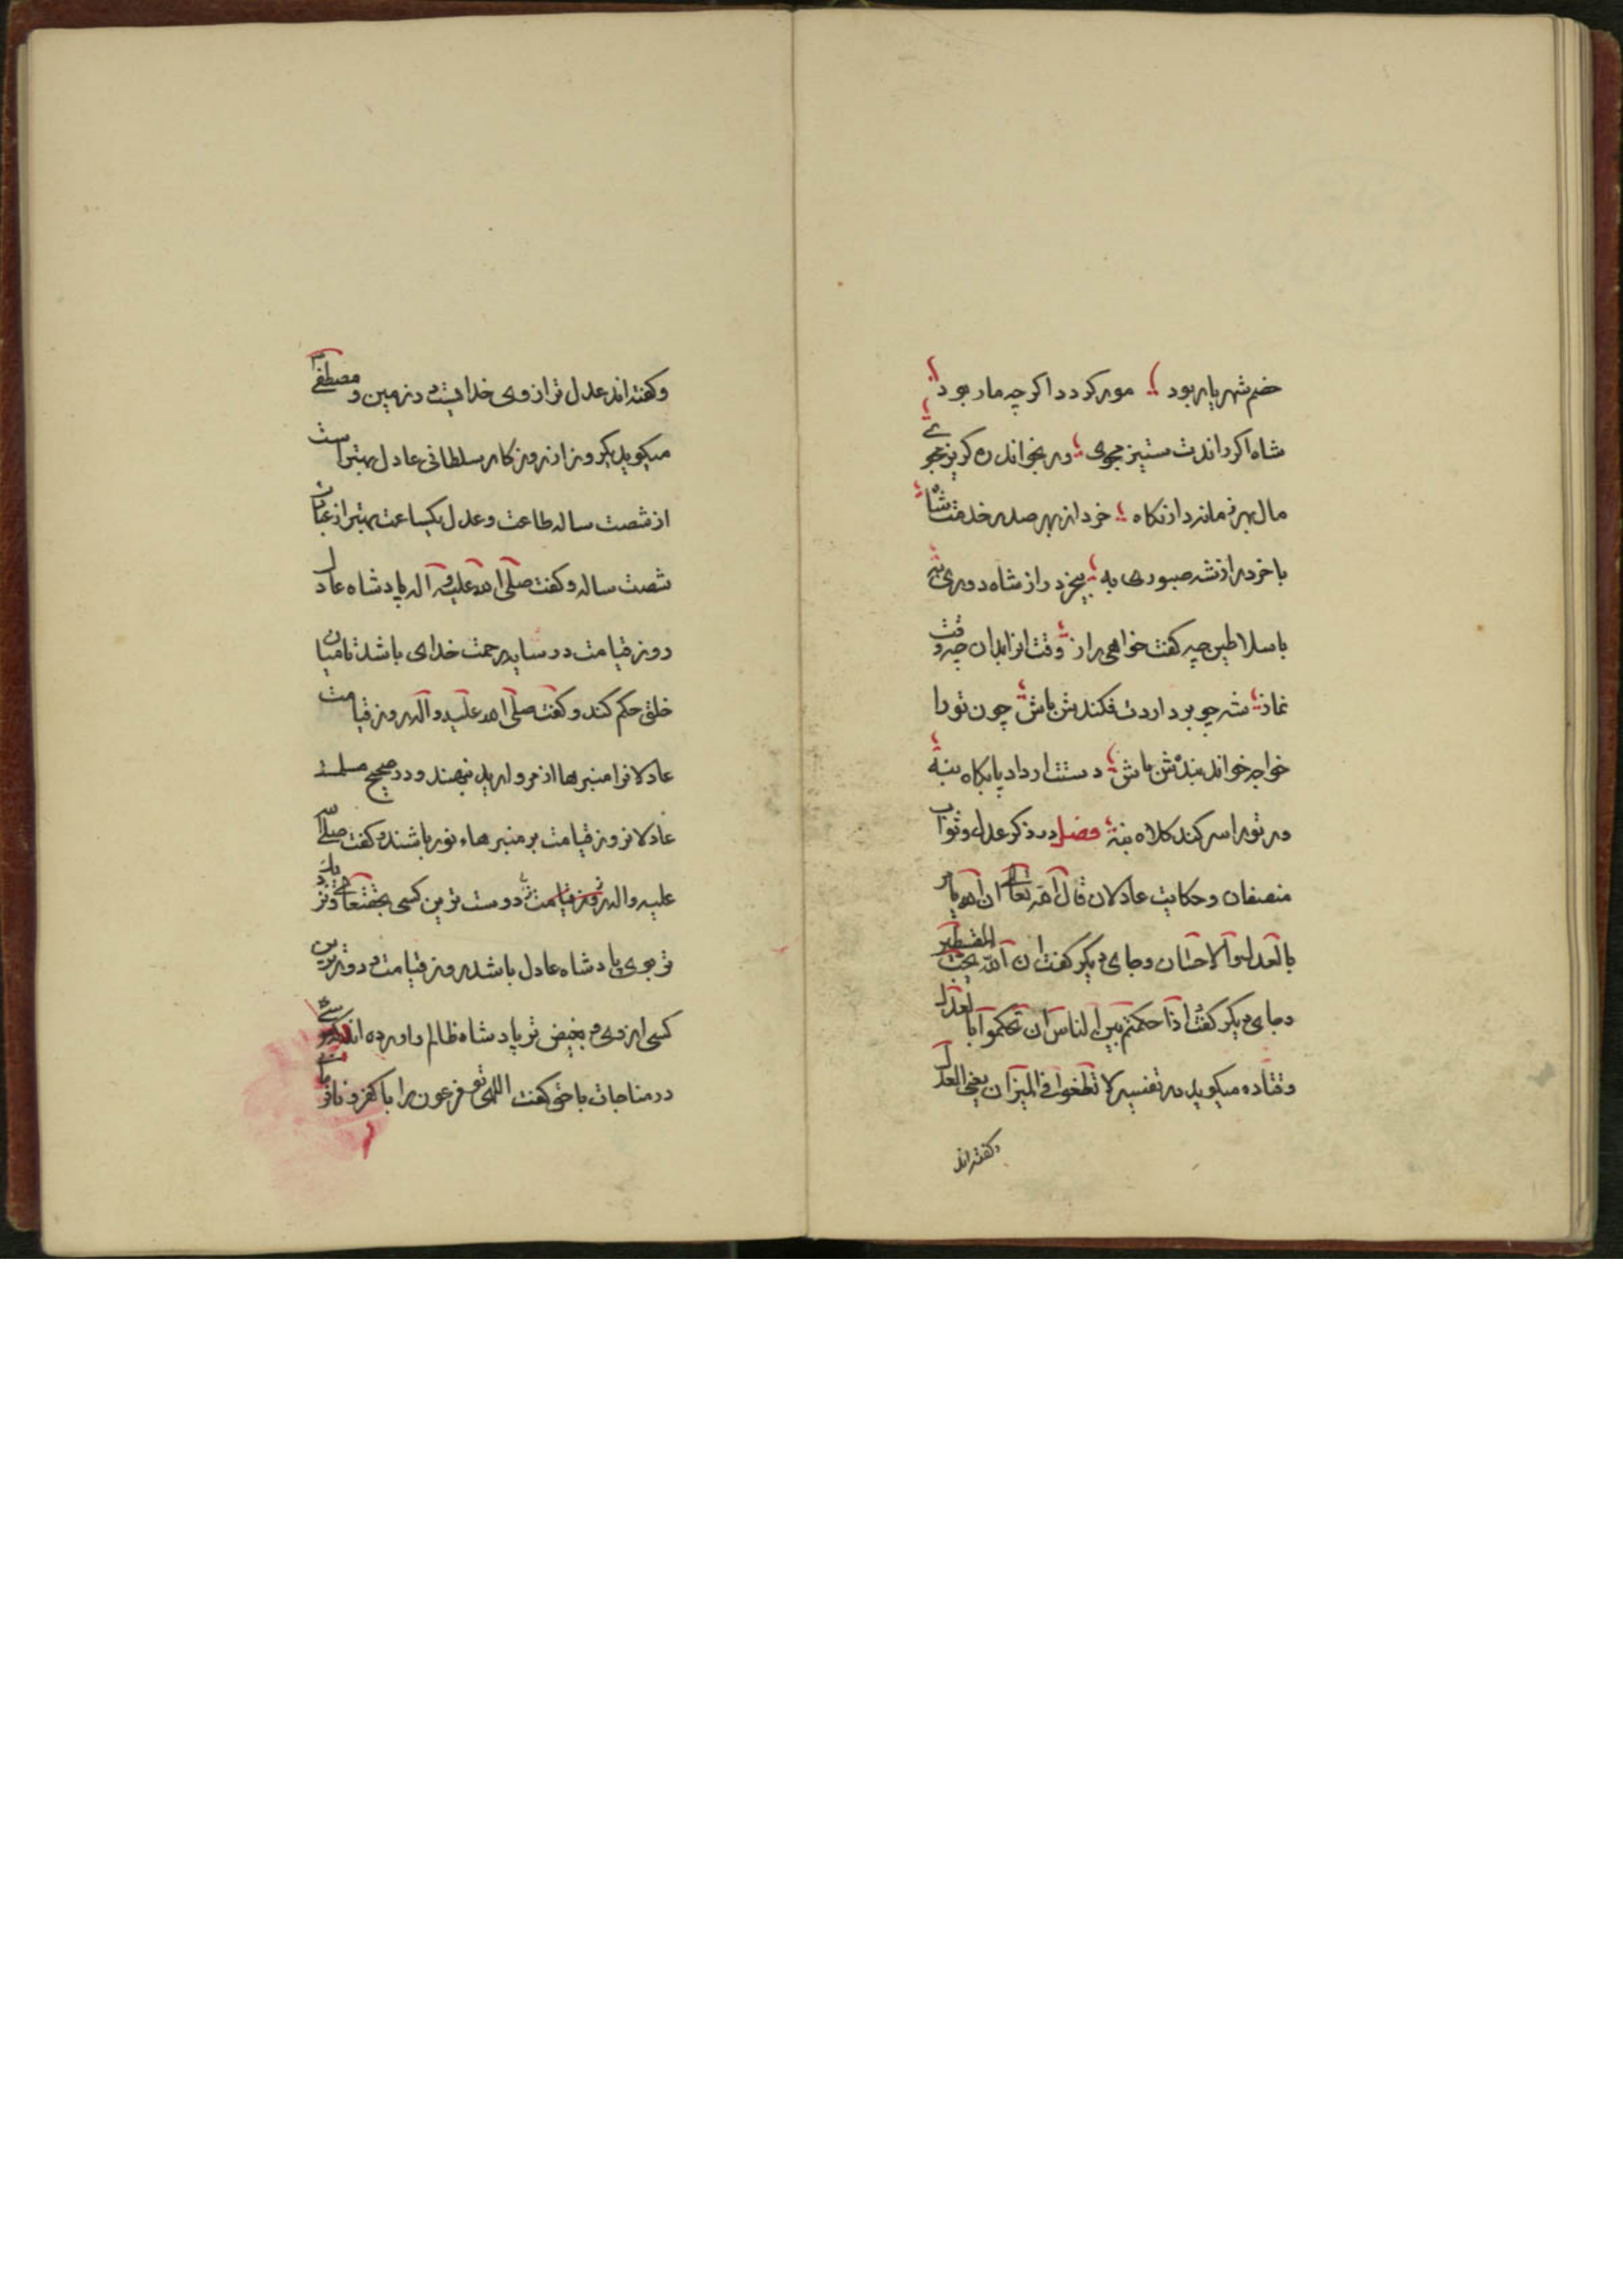 خصم شهریار بود مور کردد اکر چه مار بود
شاه اکر راندت ستیز مجوی ور بخواندت کریز مجوی
مال بهر نماند دار نکاه خرد از بهر صدر خدمت شاه
با خرد را ز شه صبوری به بیخرد را ز شاه دوری به
با سلاطین چه کفت خواهی راز وقت از ابدان چه وقت
نماز شه چو بردارت فکندش باش چون تو را
خواجه خواند بندش باش دستت ار داد پایکاه بنه
ور تو را سر کند کلاه بنه فصل در ذکر عدل و ثواب
منصفان و حکایت عادلان قال الله تعالی ان الله یامر
بالعدل والاحسان و جای دیکر کفت ان الله یحب المقسطین
و جای دیکر کفت اذا حکمتم بین الناس ان تحکموا بالعدل
و قتاده میکوید در تفسیر لا تطغوا فی المیزان یعنی العدل
و کفته اند
و کفته اند عدل ترازوی خدایست در زمین و مصطفی
میکوید یکروز از روزکار سلطانی عادل بهتر است
از شصت ساله طاعت و عدل یکساعت بهتر از عبادت
شصت ساله و کفت صلی الله علیه و آله پادشاه عادل
روز قیامت در سایه رحمت خدای باشد تا میان
خلق حکم کند و کفت صلی الله علیه و آله روز قیامت
عادلانرا منبرها از مروارید بنهند و در صحیح مسلم
عادلان روز قیامت بر منبرهاء نور باشند و کفت صلی الله
علیه و اله روز قیامت دوست ترین کسی بحقتعالی و نزدیک
تر بوی پادشاه عادل باشد روز قیامت و دورترین
کسی از وی و بغیض تر پادشاه ظالم و اورده اند موسی
در مناجات با حق کفت الهی تو فرعون را با کفر و نافرمانی